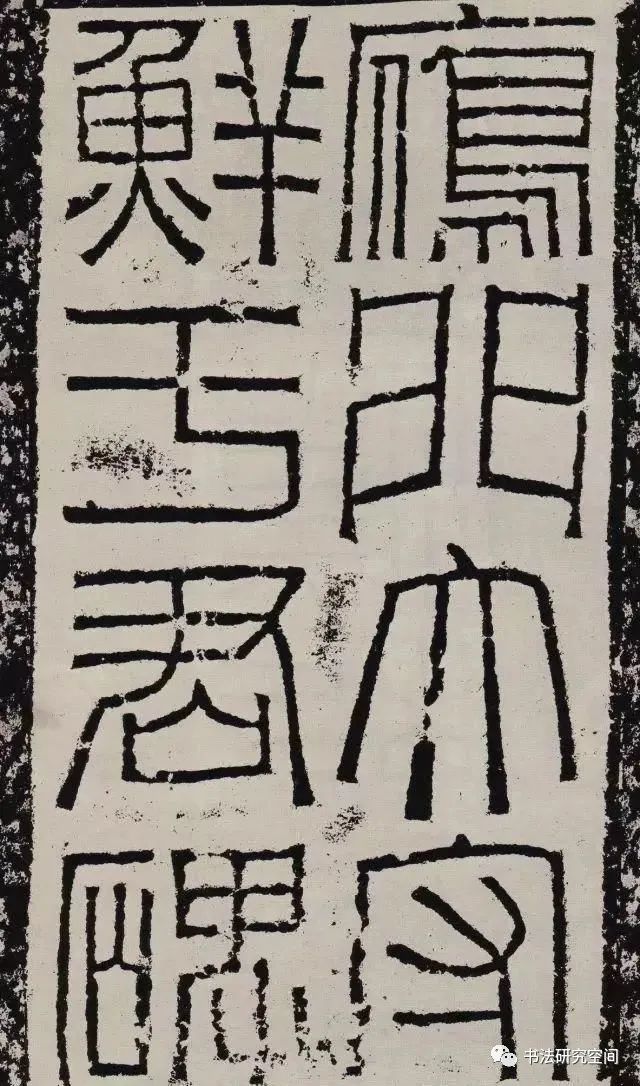 鴈門太守
鮮于君碑
书法研究空间